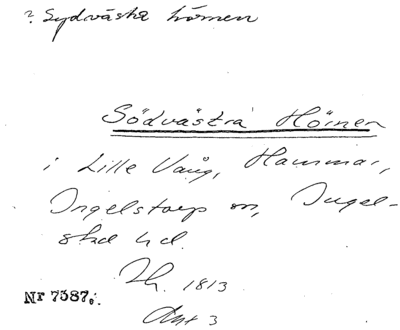 ? Sydvästa hörnen
Södvästra Höinen
i Lille Vång, Hammar,
Ingelstorp sn, Ingel-
stad hd.
Lh. 1813
Nr 7587.
Akt 3